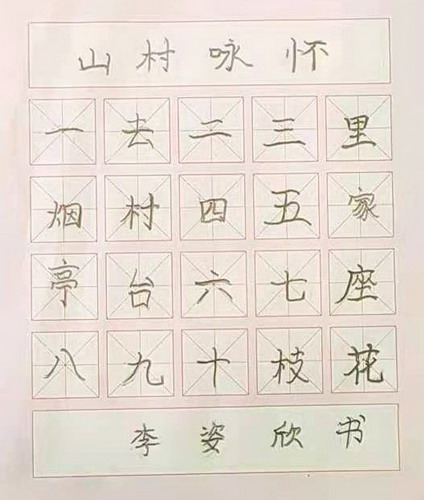 山村咏怀
一去二三里
烟村四五家
亭台六七座
八九十枝花
李姿欣书